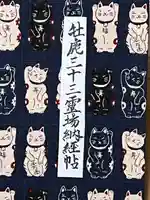 牡鹿三十三霊場納経帖